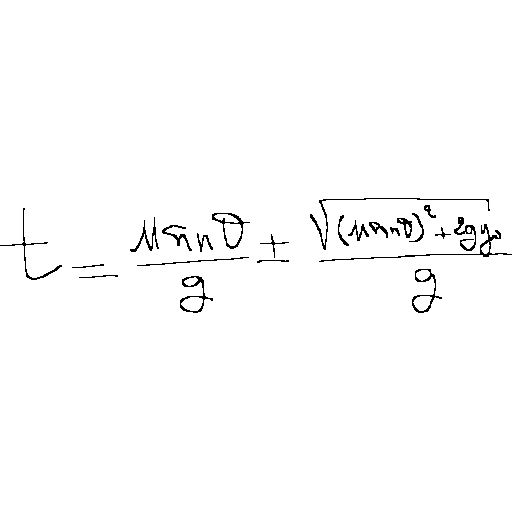 t = \frac{u \sin \theta}{g} \pm \frac{\sqrt{(u \sin \theta)^2 + 2gy_0}}{g}